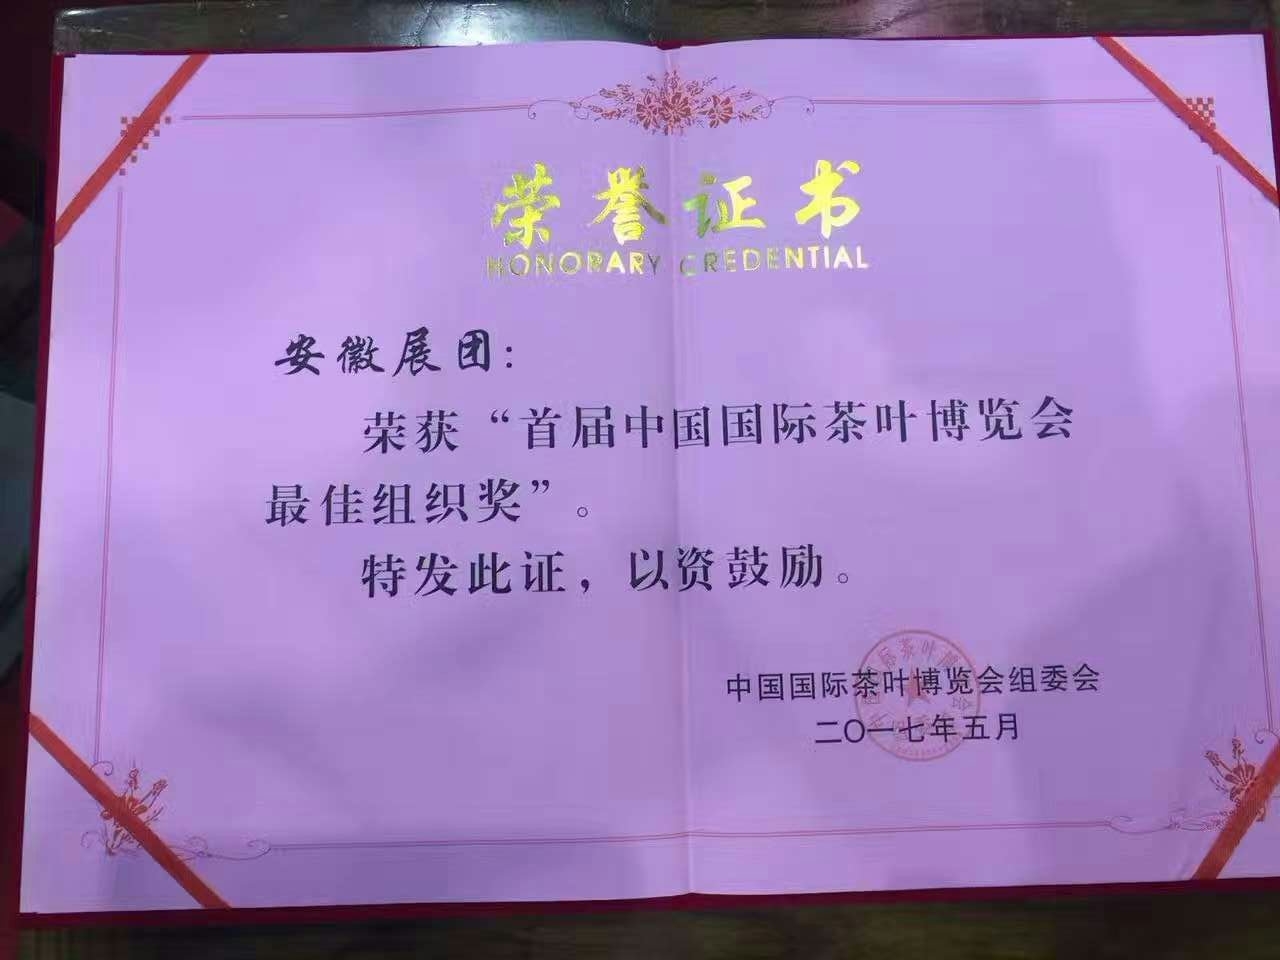 荣誉证书
HONORARY CREDENTIAL
安徽展团：
荣获“首届中国国际茶叶博览会
最佳组织奖”。
特发此证，以资鼓励。
中国国际茶叶博览会组委会
二〇一七年五月